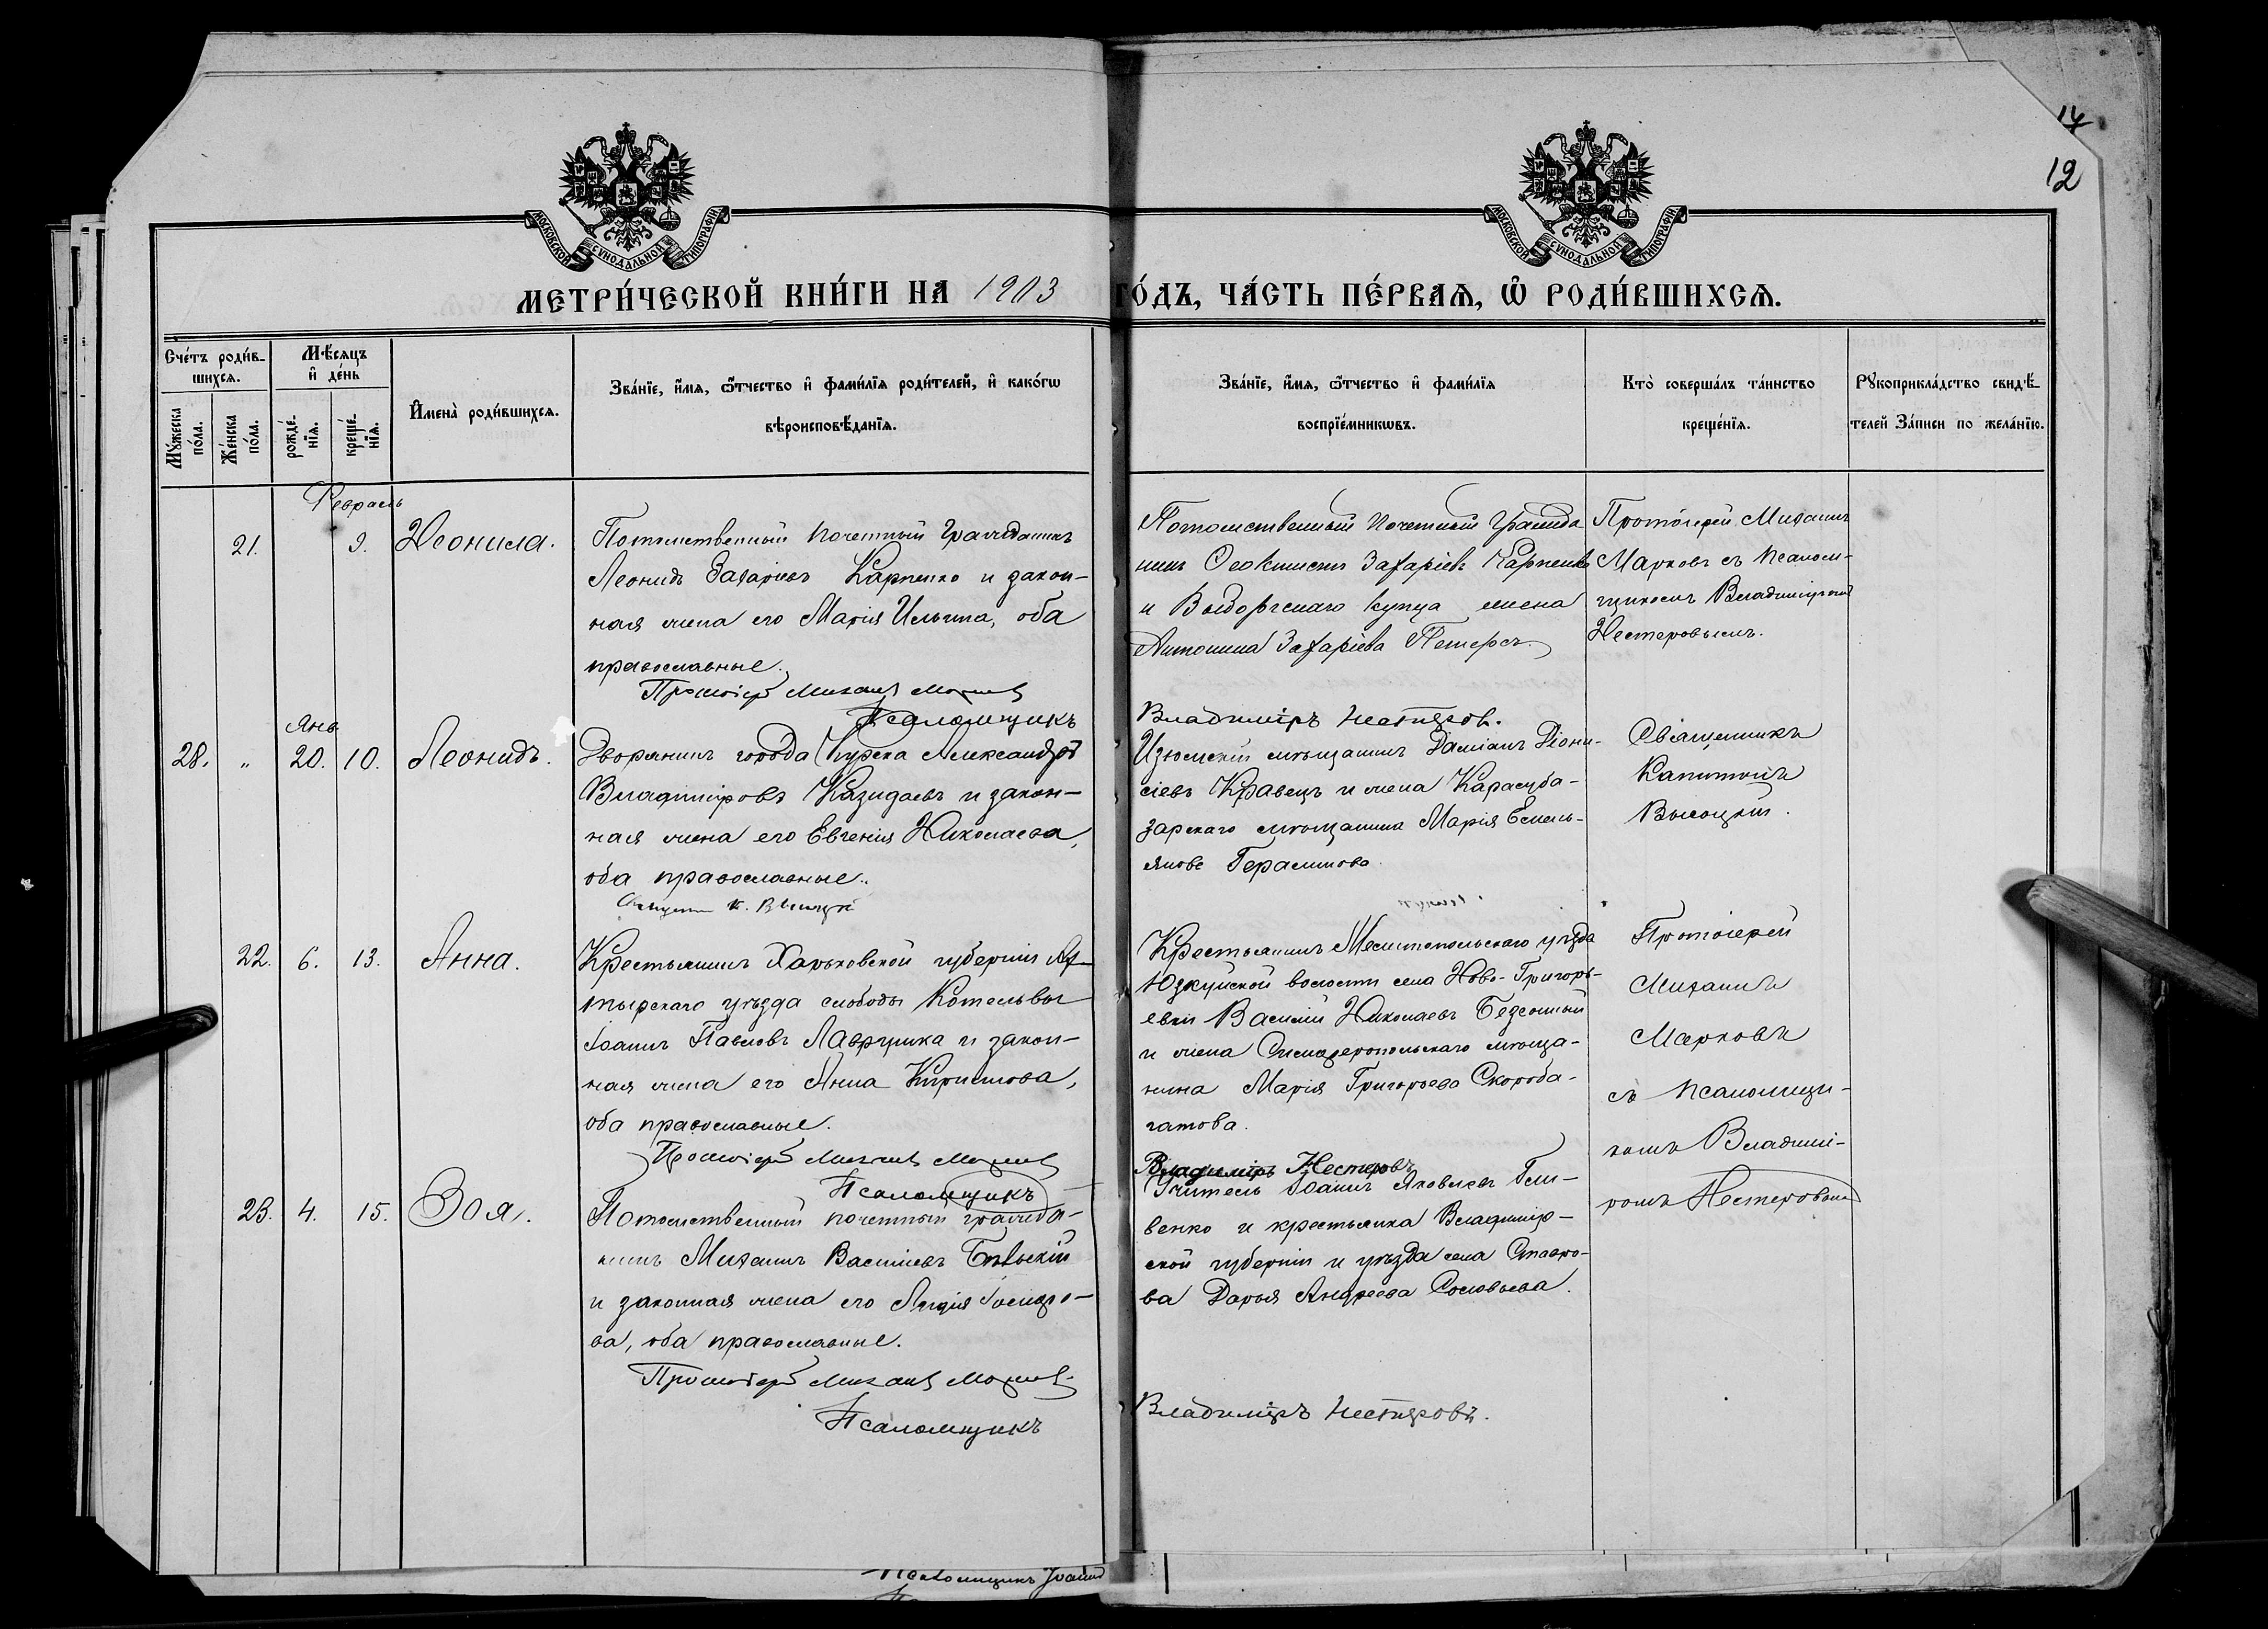 14
12
МОСКОВСКОЙ СѴНОДАЛЬНОЙ ТИПОГРАФІИ.
МОСКОВСКОЙ СѴНОДАЛЬНОЙ ТИПОГРАФІИ.
МЕТРИ́ЧЕСКОЙ КНИ́ГИ НА 1903 ГО́ДЪ, ЧА́СТЬ ПЕ́РВАѦ, Ѡ҆ РОДИ́ВШИХСѦ.
Сче́тъ роди́в-
шихсѧ.
Мꙋ́жеска
по́ла.
Же́нска
по́ла.
Мѣ́сѧцъ
и҆ де́нь
рожде́-
нїѧ.
креще́-
нїѧ.
И҆мена̀ роди́вшихсѧ.
Зва́нїе, и҆́мѧ, ѻ҆́тчество и҆ фами́лїѧ роди́телей, и҆ како́гѡ
вѣроисповѣ́данїѧ.
Зва́нїе, и҆́мѧ, ѻ҆́тчество и҆ фами́лїѧ
воспрїе́мникѡвъ.
Кто̀ соверша́лъ та́инство
креще́нїѧ.
Рꙋкоприкла́дство свидѣ́-
телей За́писи по жела́нїю.
Февраль
21.
9.
Неонила.
Потомственный почетный гражданинъ
Леонидъ Захаріевъ Карпенко и закон-
ная жена его Марія Ильина, оба
православные.
Протоіерей Михаилъ Марковъ
Псаломщикъ
Потомственный почетный гражда
нинъ Феоктистъ Захаріевъ Карпенко
и Выборгскаго купца жена
Антонина Захаріева Петерсъ.
Владиміръ Нестеровъ.
Протоіерей Михаилъ
Марковъ съ псалом-
щикомъ Владиміромъ
Нестеровымъ.
Янв.
28. „ 20. 10.
Леонидъ.
Дворянинъ города Курска Александръ
Владиміровъ и закон-
ная жена его Евгенія Николаева,
оба православные.
Священ К. Высоцкій
Изюмскій мѣщанинъ Даміанъ Діони-
сіевъ Кравецъ и жена Карасуба-
зарскаго мѣщанина Марія Емель-
янова Герасимова.
Священникъ
Капитонъ
Высоцкій.
22. 6. 13.
Анна.
Крестьянинъ Харьковской губерніи Ах-
тырскаго уѣзда слободы Котельвы
Іоаннъ Павловъ Лаврушка и закон-
ная жена его Анна Кириллова,
оба православные.
Протоіерей Михаилъ Марковъ
Псаломщикъ
Крестьянинъ Мелитопольскаго уѣзда
Юзкуйской волости села Ново-Григорь-
евки Василій Николаевъ Безсонный
и жена Симферопольскаго мѣща-
нина Марія Григорьева Скороба-
гатова.
Владиміръ Нестеровъ
Протоіерей
Михаилъ
Марковъ
съ псаломщи-
комъ Владимі-
ромъ Нестеровымъ
23. 4. 15.
Зоя.
Потомственный почетный гражда-
нинъ Михаилъ Василіевъ Бѣльскій
и законная жена его Лидія Іосифо-
ва, оба православные.
Протоіерей Михаилъ Марковъ
Псаломщикъ
Учитель Іоаннъ Яковлевъ
венко и крестьянка Владимір-
ской губерніи и уѣзда села Ставро-
ва Дарья Андреева Соловьева.
Владиміръ Нестеровъ.
Псаломщикъ Іоаннъ